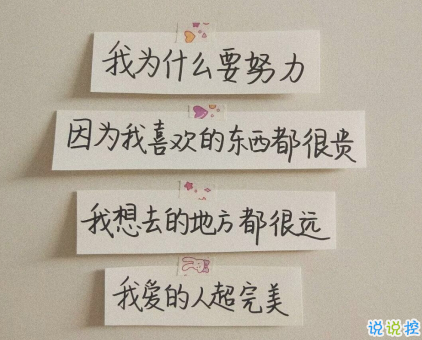 我为什么要努力
因为我喜欢的东西都很贵
我想去的地方都很远
我爱的人超完美
说说控